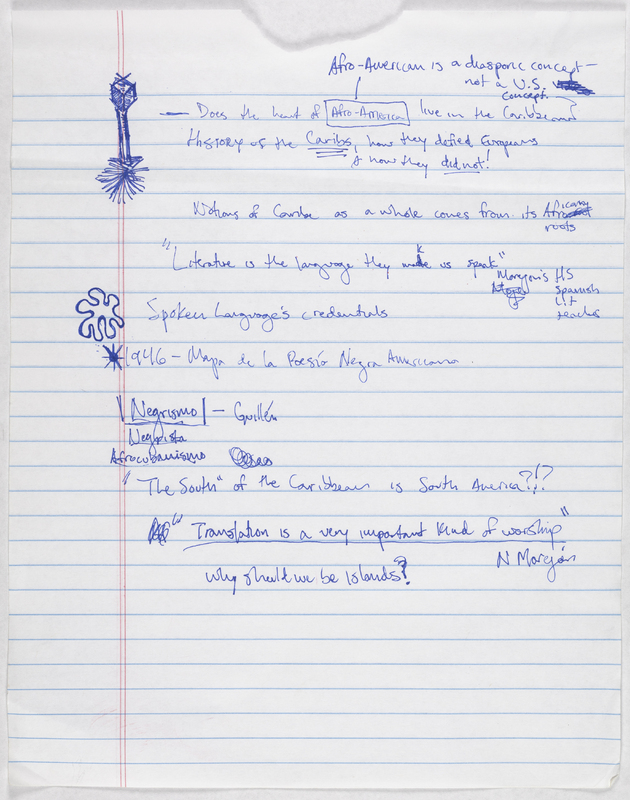 Afro-American is a diasporic concept—
not a U.S.
concept.
— Does the heart of Afro-American live in the Caribbean?
History of the Caribs, how they defied Europeans
& how they did not!
Notions of Caribe as a whole comes from its African
roots
"Literature is the language they make us speak"
Morejon's HS
Spanish
Lit
teacher
Spoken Language's credentials
1946 – Mapa de la Poesía Negra Americana.
Negrismo — Guillén
Negrista
Afrocubanismo
"The South" of the Caribbean is South America?!?
"Translation is a very important kind of worship"
N Morejón
why should we be islands?